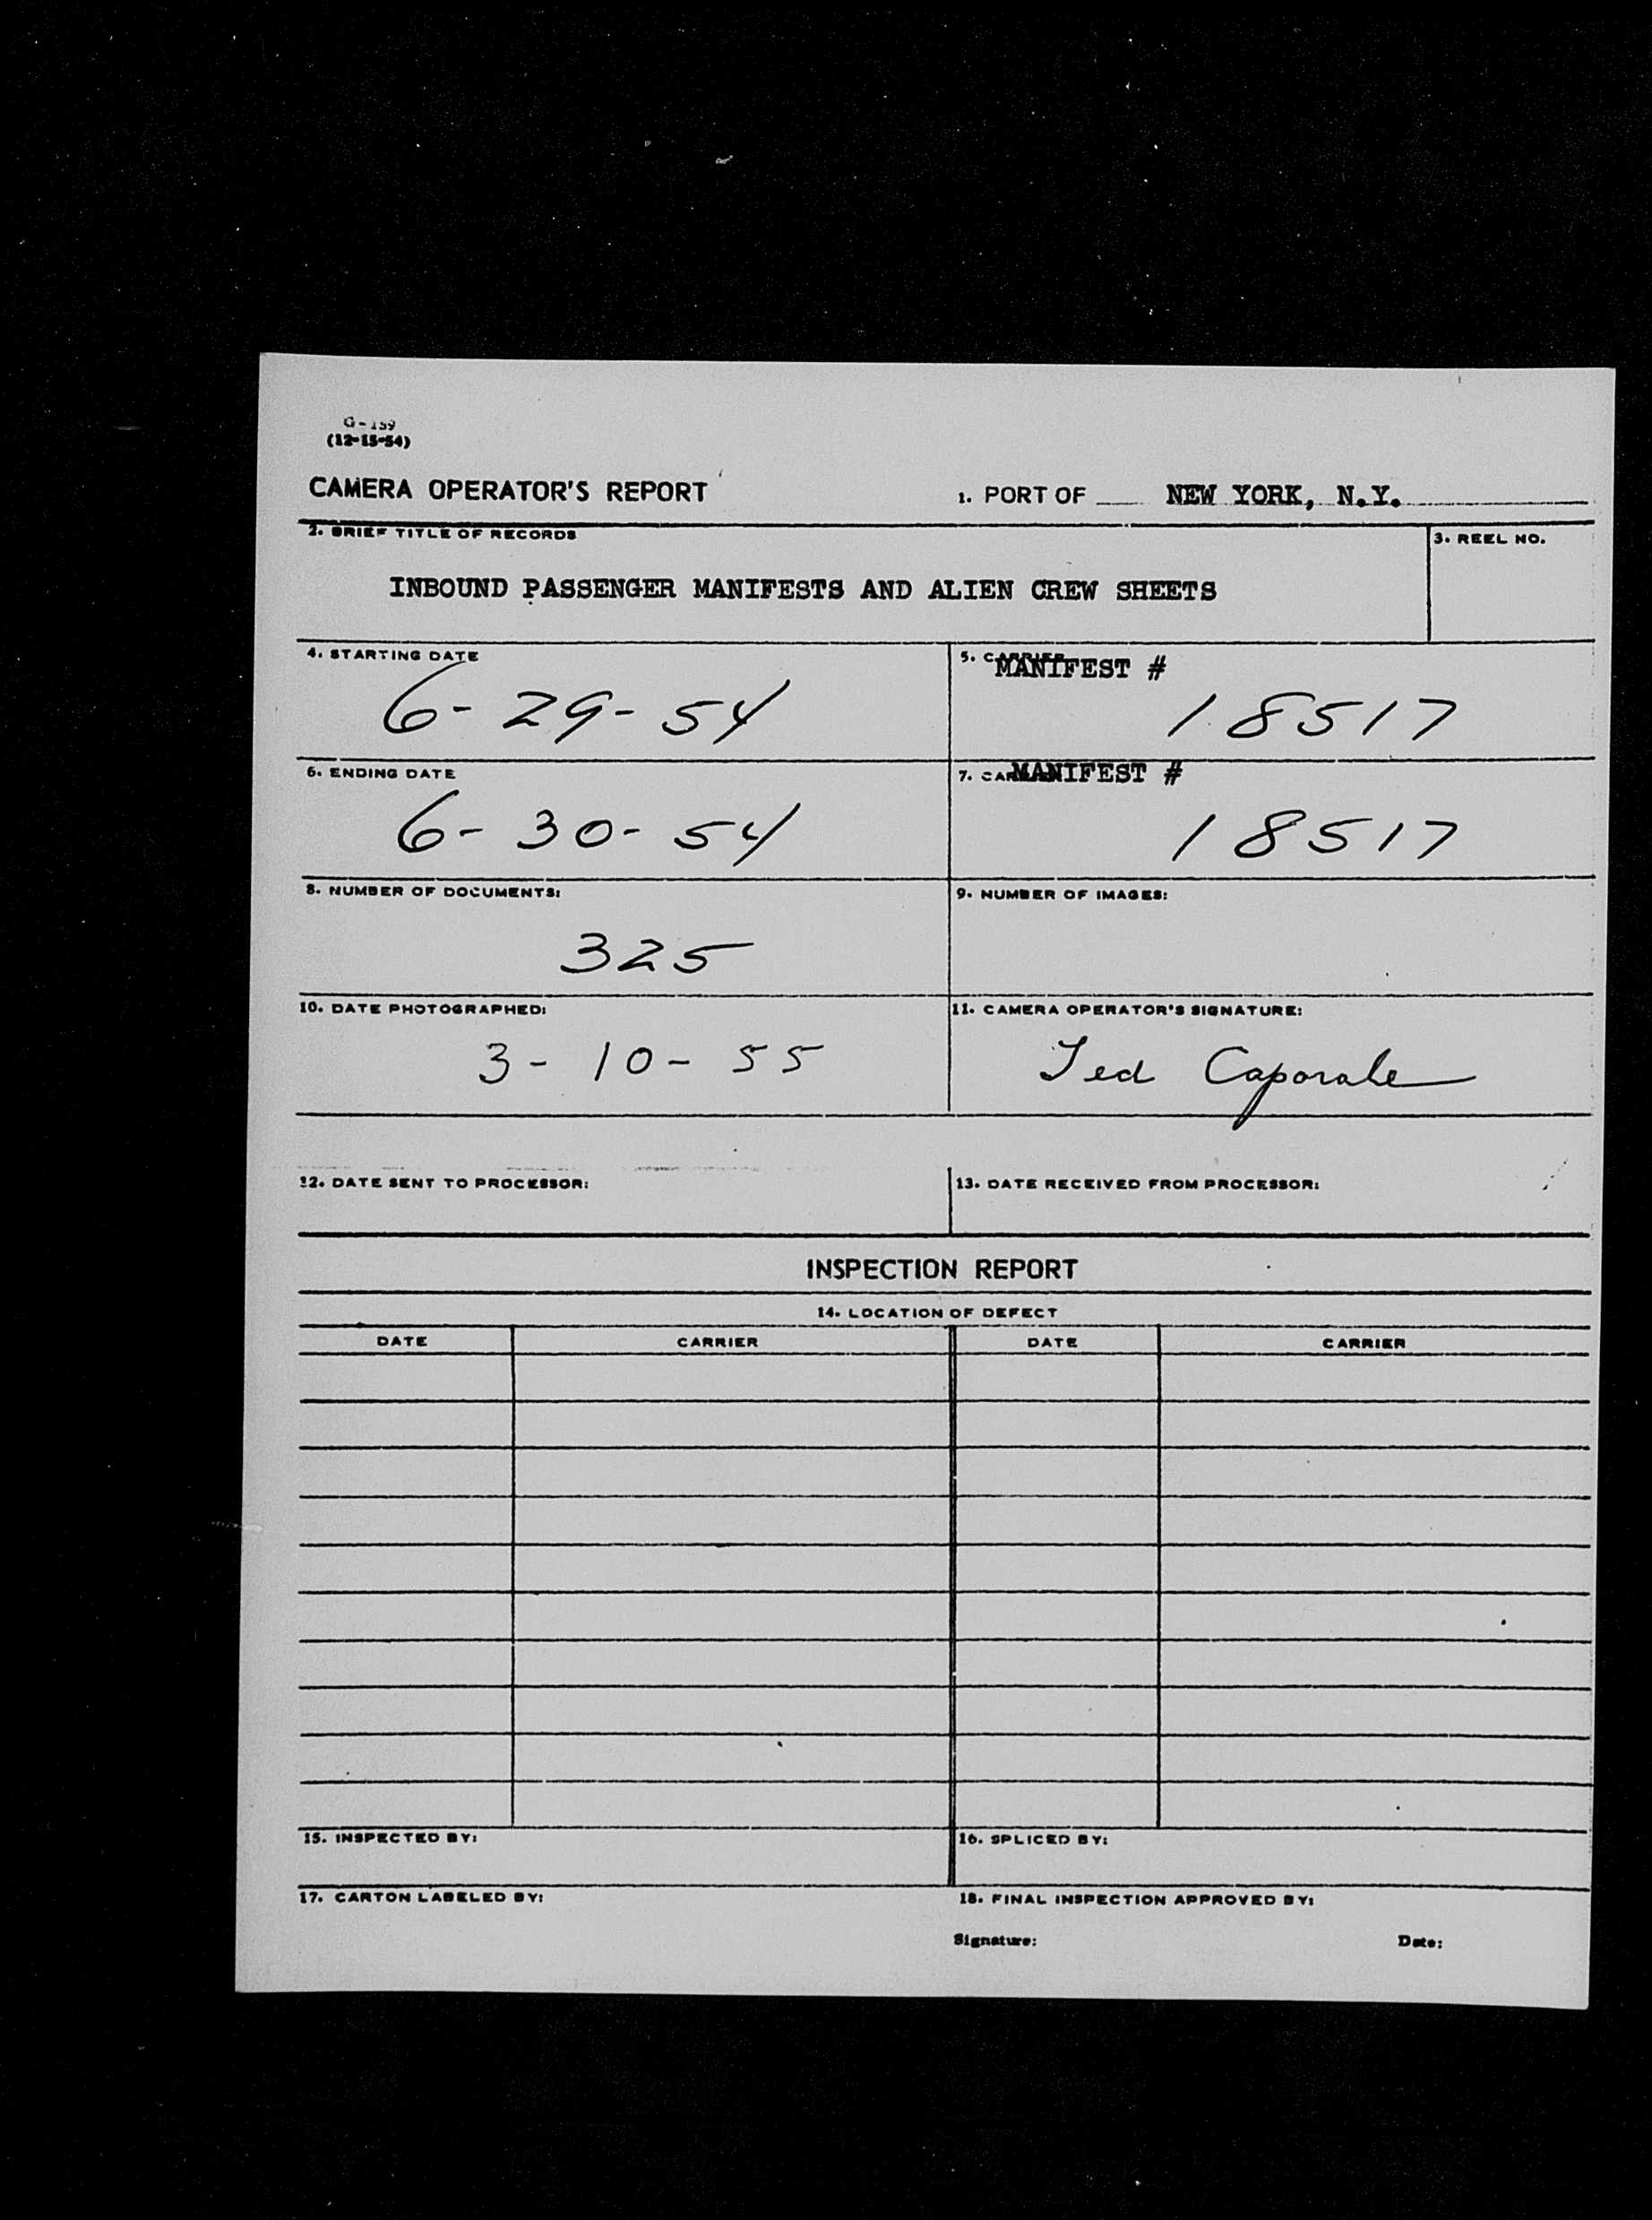 G-159
(12-15-54)
CAMERA OPERATOR'S REPORT
1. PORT OF NEW YORK, N.Y.
2. BRIEF TITLE OF RECORDS
3. REEL NO.
INBOUND PASSENGER MANIFESTS AND ALIEN CREW SHEETS
4. STARTING DATE
6-29-54
5. CARRIER
MANIFEST #
18517
6. ENDING DATE
6-30-54
7. CARRIER
MANIFEST #
18517
8. NUMBER OF DOCUMENTS:
325
9. NUMBER OF IMAGES:
10. DATE PHOTOGRAPHED:
3-10-55
11. CAMERA OPERATOR'S SIGNATURE:
Ted Caporale
12. DATE SENT TO PROCESSOR:
13. DATE RECEIVED FROM PROCESSOR:
INSPECTION REPORT
14. LOCATION OF DEFECT
DATE CARRIER DATE CARRIER
15. INSPECTED BY:
16. SPLICED BY:
17. CARTON LABELED BY:
18. FINAL INSPECTION APPROVED BY:
Signature: Date: